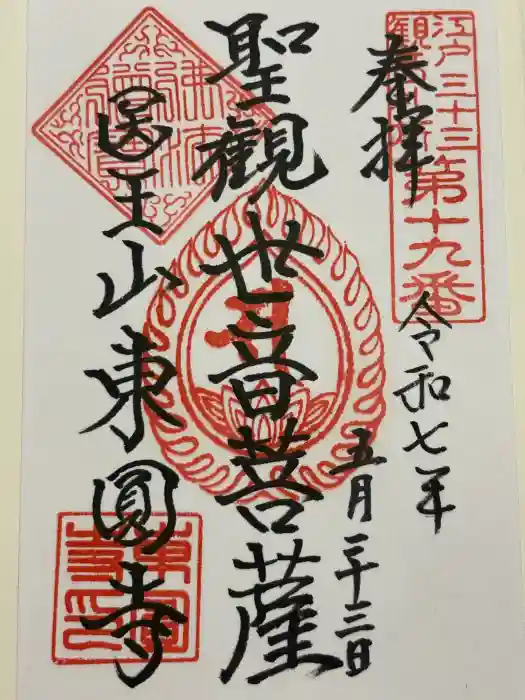 江戸三十三
観音札所
第十九番
奉拝
令和七年
五月二十三日
聖観世音菩薩
医王山東圓寺
佛法僧寶
東圓寺印